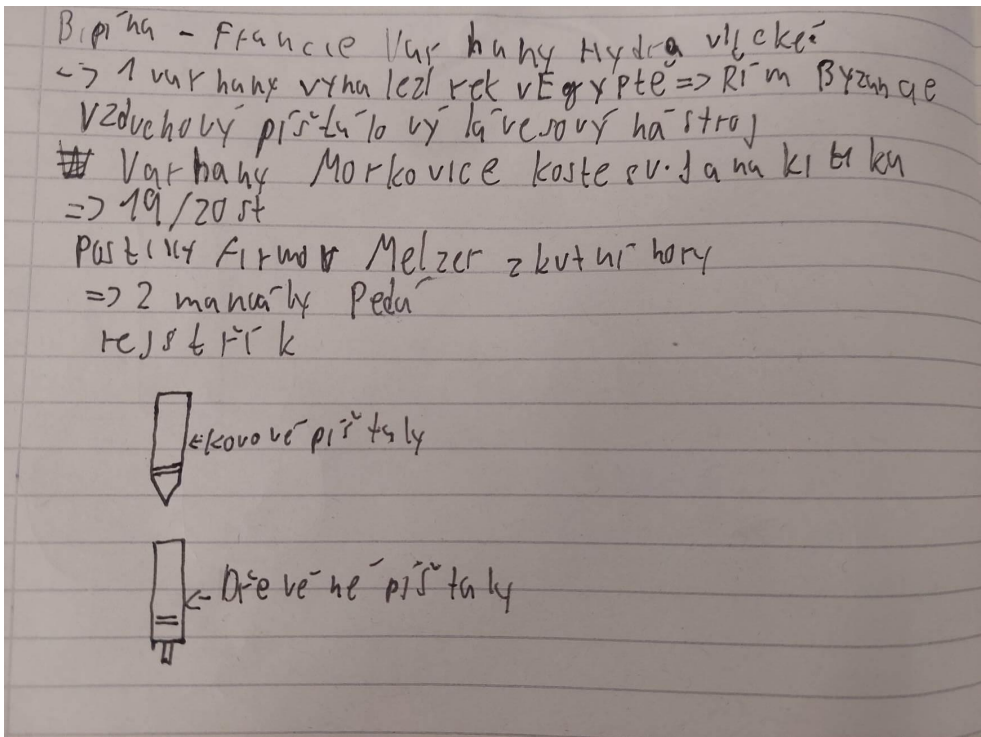 Bipína - Francie Varhany Hydravlické
=> 1 varhany vynalezl rek v Egyptě => Rím Byzance
Vzduchový píšťálový lávesový nástroj
Varhany Morkovice kostel sv. Jana křtitka
=> 19/20 st
Past firmov Melzer z kutní hory
=> 2 manuály Pedá
rejstřík
<- kovové píšťaly
<- Dřevéné píšťaly